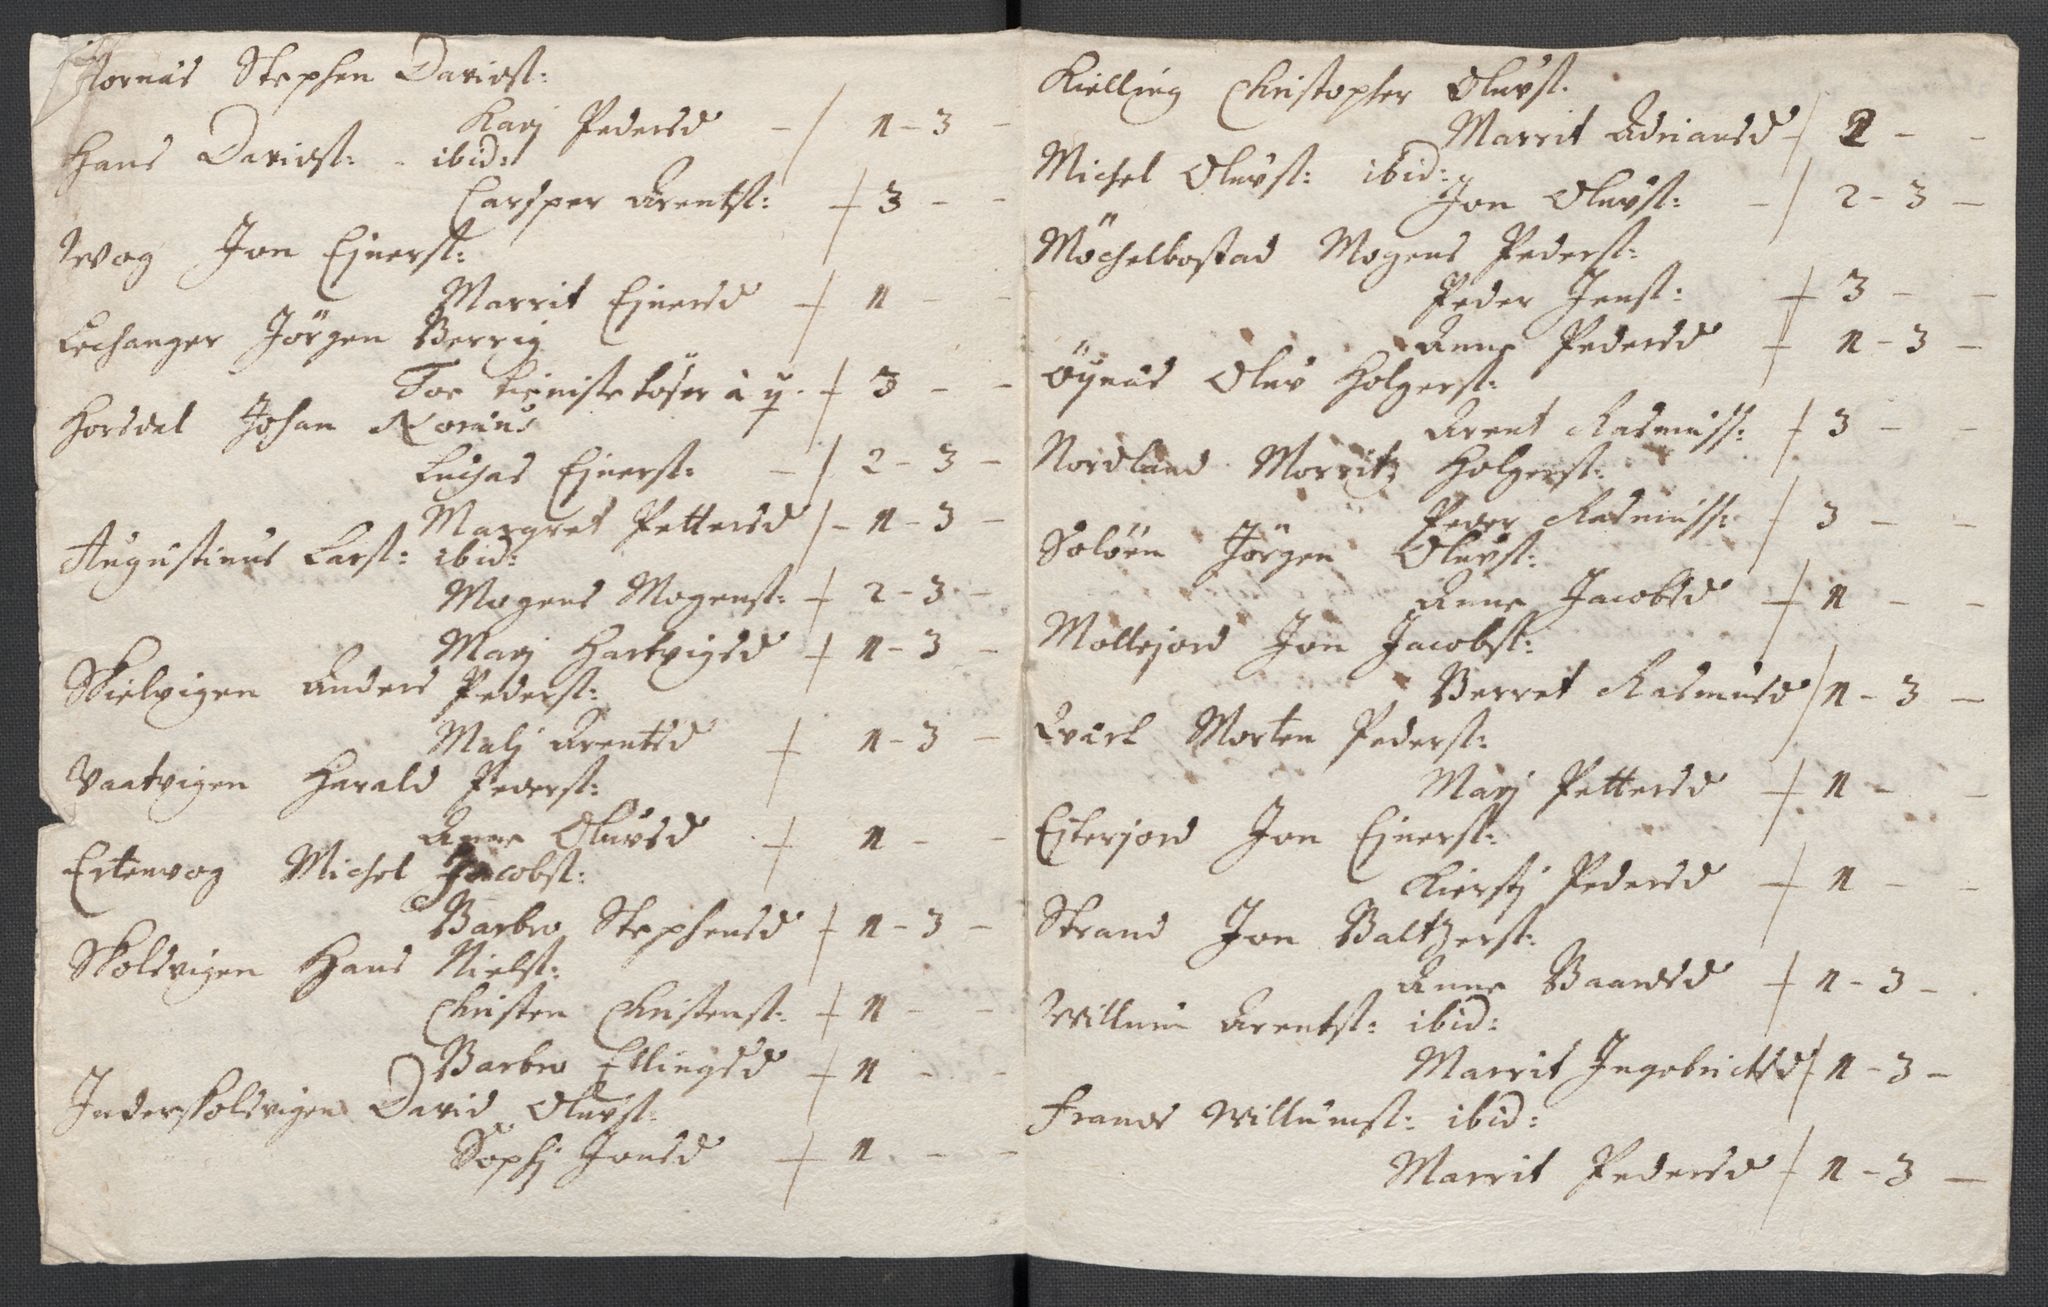 Stornæs Stephen Davidst:
Karj Pedersd - / 1 - 3 -
Hans Davidst: - ibid:
Carsper Arentst: + 3 - -
Wog Jon Ejnerst:
Marrit Ejnersd + 1 - -
Lechanger Jörgen Berrig
Toe tieniste töser à + 3 - -
Horsdal Johan
Luchas Ejnerst: - / 2 - 3 -
Margret Pettersd / - 1 - 3 -
Augustinus Larst: ibid:
Mogens Mogenst: + 2 - 3 -
Marj Hartvigsd + 1 - 3 -
Skielvigen Anders Pederst:
Malj Arentsd + 1 - 3 -
Vaatvigen Harald Pederst:
Anne Oluvsd + 1 - -
Ertenvog Michel Jacobst:
Barbro Stephensd + 1 - 3 -
Skolsvigen Hans Nielst:
Christen Christenst: + 1 - -
Barbro Ellingsd + 1 - -
Inderskolsvigen David Oluvst:
Sophj Jonsd + 1 - -
Kielling Christopher Oluvst.
Marrit Adriansd + 2 - -
Michel Oluvst: ibid:
Jon Oluvst: - / 2 - 3 -
Möchelbostad Mogens Pederst:
Peder Jenst: + 3 - -
Anne Pedersd + 1 - 3 -
Öynæs Oluv Holgerst:
Arent Rasmuss: + 3 - -
Nordland Morritz Holgerst:
Peder Rasmuss: + 3 - -
Soløen Jörgen Oluvst:
Anne Jacobsd + 1 - -
Mollejord Jon Jacobst:
Berret Rasmusd / 1 - 3 -
Evisk Morten Pederst:
Marj Pettersd + 1 - -
Ejterjord Jon Ejnerst:
Kierstj Pedersd + 1 - -
Strand Jon Baltzerst:
Anne Baardsd + 1 - 3 -
Willum Arentst: ibid:
Marrit Ingebrictsd / 1 - 3 -
Frands Willumst: ibid:
Marrit Pedersd + 1 - 3 -